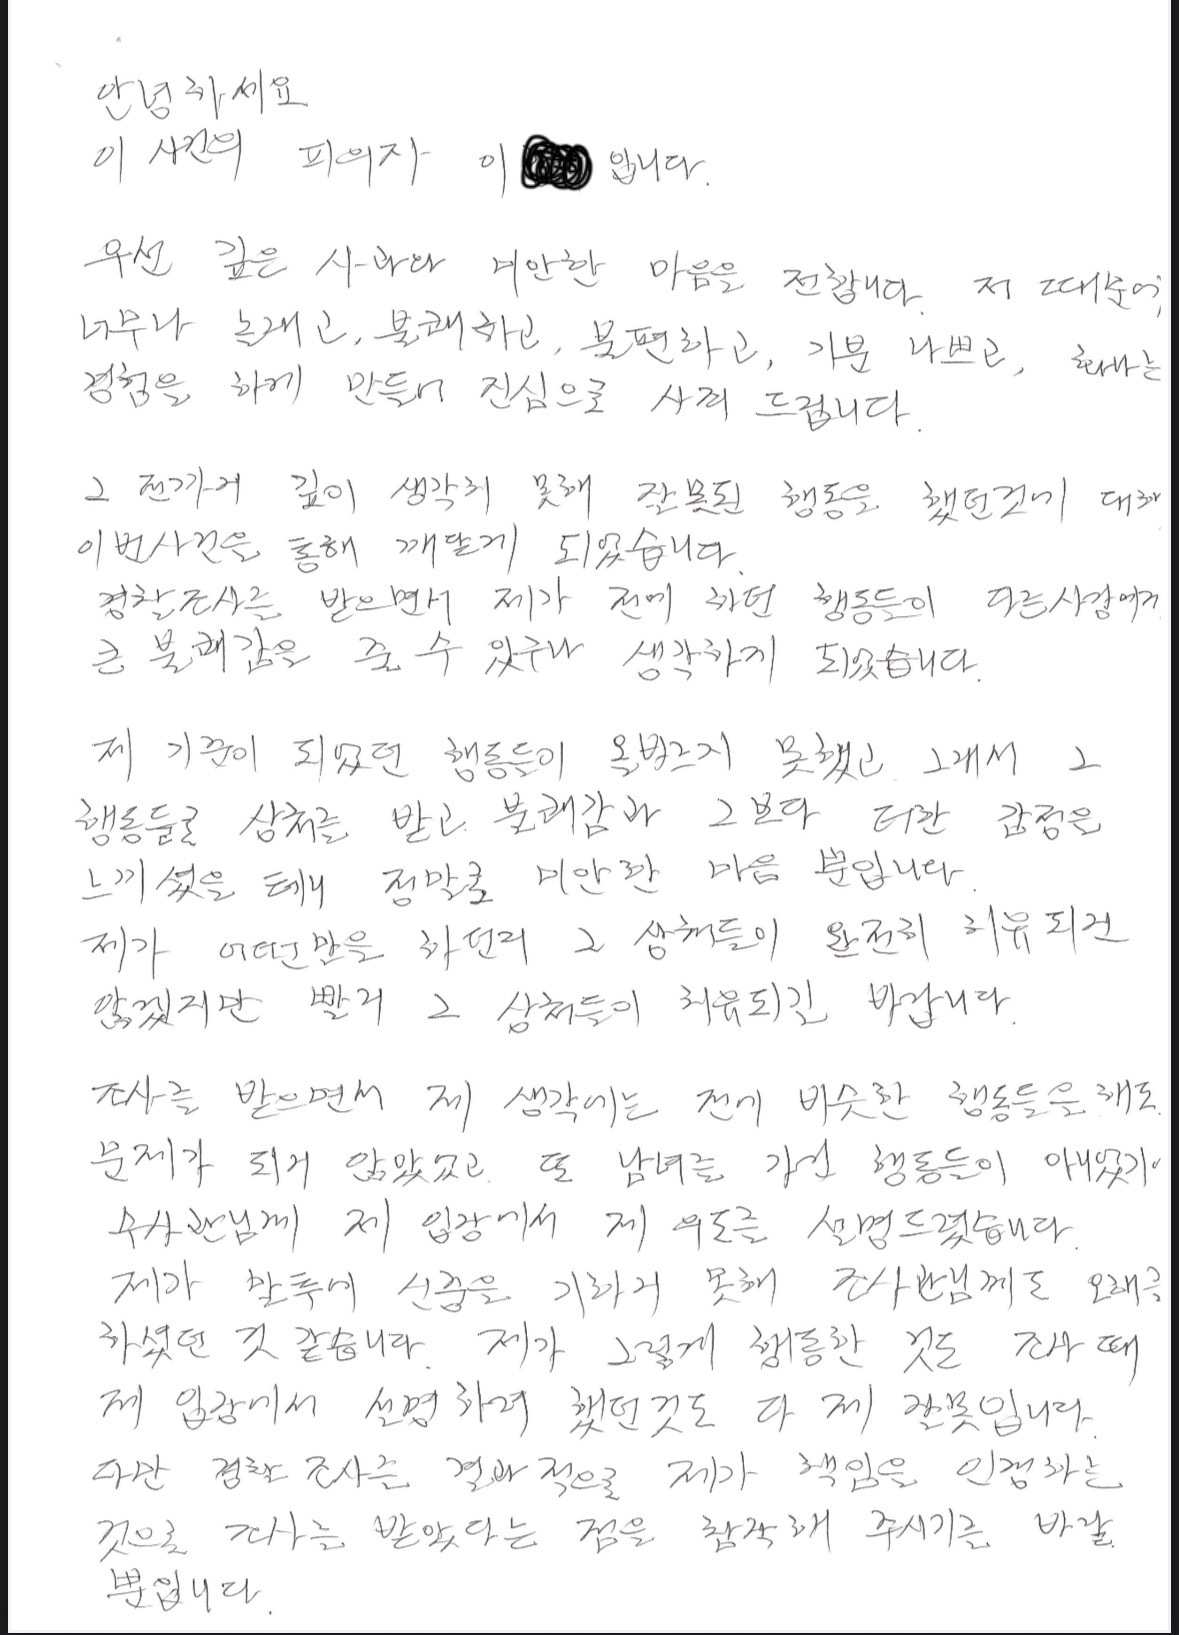 안녕하세요
이 사건의 피의자 이 입니다.
우선 깊은 사과와 미안한 마음을 전합니다. 저 때문에
너무나 놀래고, 불쾌하고, 불편하고, 기분 나쁘고, 화나는
경험을 하게 만들어 진심으로 사죄 드립니다.
그 전까지 깊이 생각치 못해 잘못된 행동을 했던것에 대해
이번사건을 통해 깨닫게 되었습니다.
경찰조사를 받으면서 제가 전에 하던 행동들이 다른사람에게
큰 불쾌감을 줄 수 있구나 생각하게 되었습니다.
제 기준이 되었던 행동들이 올바르지 못했고 그래서 그
행동들로 상처를 받고 불쾌감과 그보다 더한 감정을
느끼셨을 테니 정말로 미안한 마음 뿐입니다.
제가 어떤말을 하던지 그 상처들이 완전히 치유되진
않겠지만 빨리 그 상처들이 치유되길 바랍니다.
조사를 받으면서 제 생각에는 전에 비슷한 행동들을 해도
문제가 되지 않았었고 또 남녀를 가린 행동들이 아니었기에
수사관님께 제 입장에서 제 의도를 설명드렸습니다.
제가 말투에 신중을 기하지 못해 조사관님께도 오해를
하셨던 것 같습니다. 제가 그렇게 행동한 것도 조사 때
제 입장에서 설명하려 했던것도 다 제 잘못입니다.
다만 경찰 조사를 결과적으로 제가 책임을 인정하는
것으로 조사를 받았다는 점을 참작해 주시기를 바랄
뿐입니다.